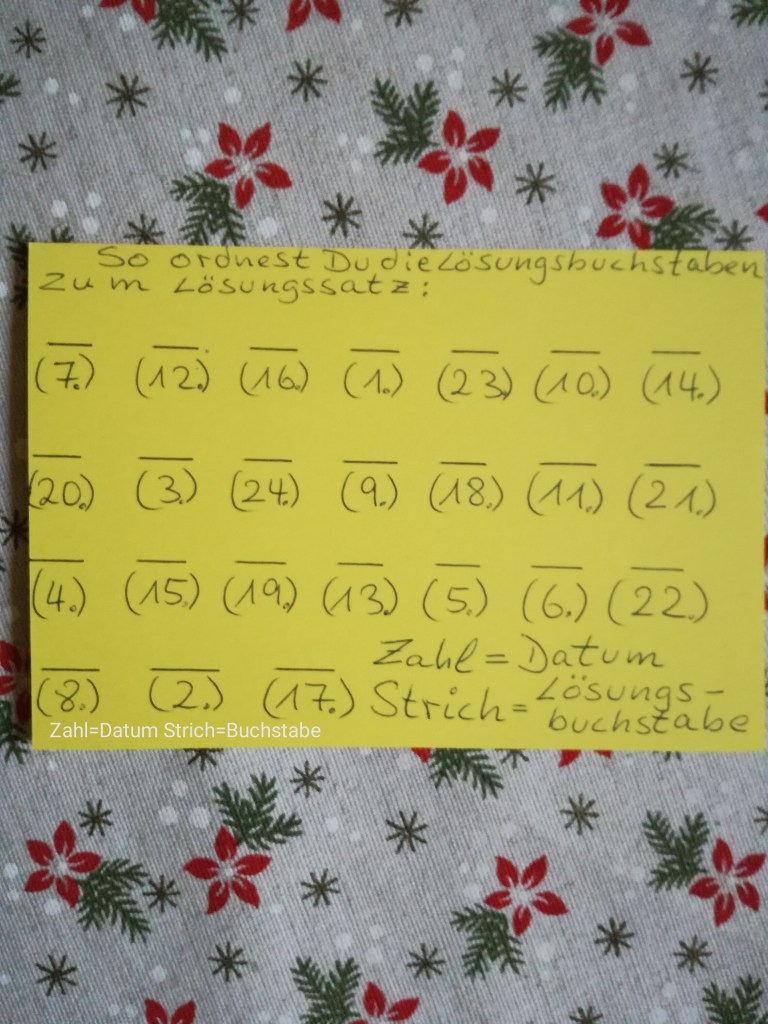 So ordnest Du die Lösungsbuchstaben
zum Lösungssatz:
(7.) (12.) (16.) (1.) (23.) (10.) (14.)
(20.) (3.) (24.) (9.) (18.) (11.) (21.)
(4.) (15.) (19.) (13.) (5.) (6.) (22.)
Zahl = Datum
(8.) (2.) (17.) Strich = Lösungs-
buchstabe
Zahl=Datum Strich=Buchstabe